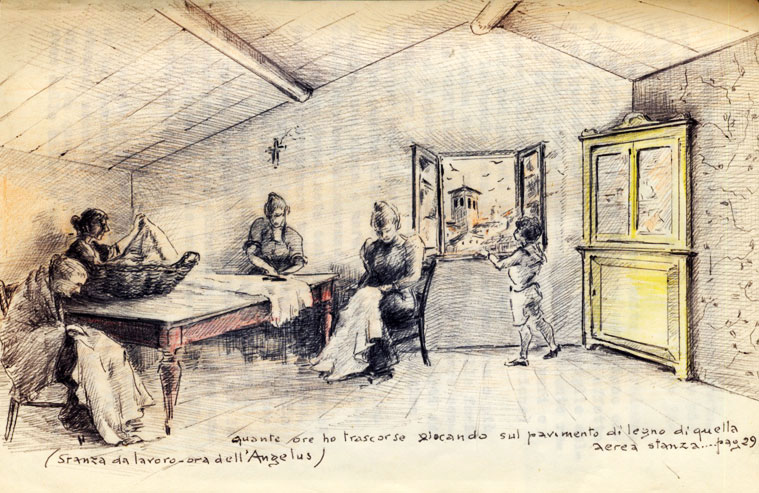 quante ore ho trascorse giocando sul pavimento di legno di quella
aerea stanza....pag 29
(stanza da lavoro - ora dell'Angelus)